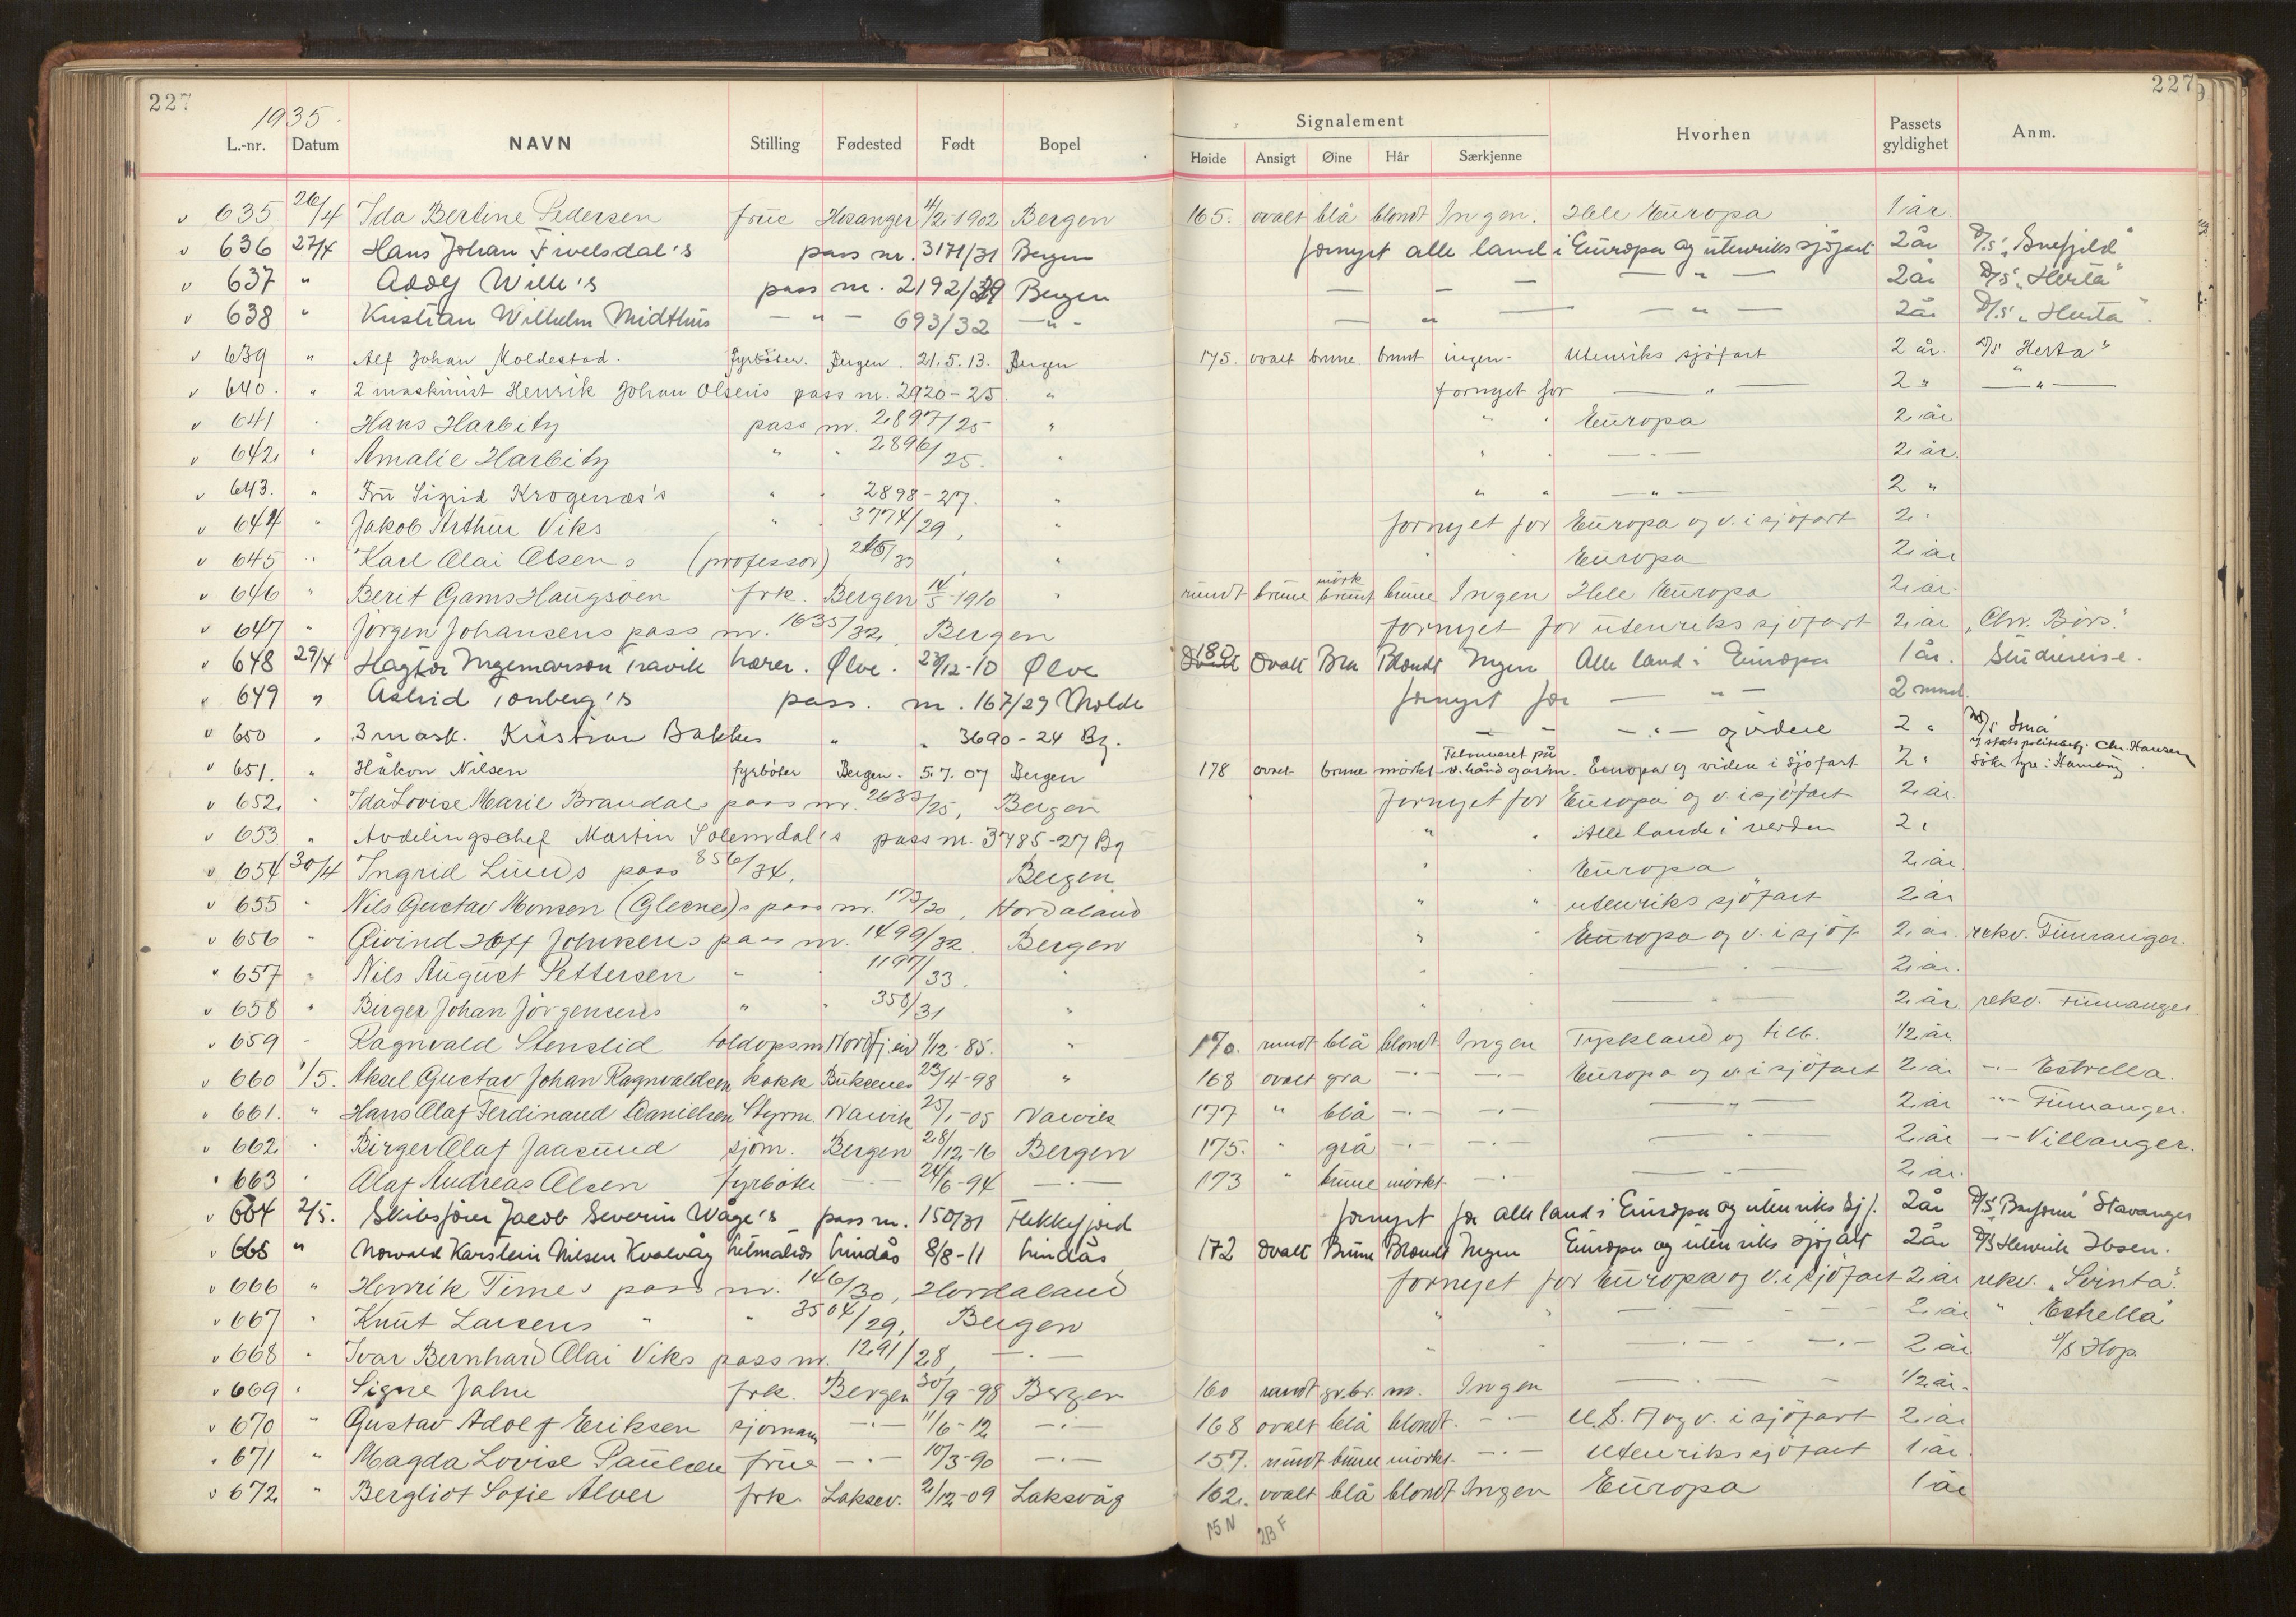 227
227
1935.
L.-nr. Datum NAVN Stilling Fødested Født Bopel Signalement Hvorhen Passets gyldighet Anm.
Høide Ansigt Øine Hår Særkjenne
v 635 26/4 Ida Bertine Pedersen frue Hosanger 4/2-1902 Bergen 165. ovalt blå blondt Ingen. Hele Europa 1 år
v 636 27/4 Hans Johan Fivelsdal's pass nr. 3171/31 Bergen fornyet alle land i Europa og utenriks sjöfart 2 år D/S "Snefjeld"
v 637 " Addy Wille's pass nr. 2192/29 Bergen — — — — " — 2 år D/S "Herta"
v 638 " Kristian Wilhelm Midthus — " — 693/32 — " — — " — — " — 2 år D/S "Herta".
v 639 " Alf Johan Moldestad. fyrböter. Bergen. 21.5.13. Bergen 175. ovalt brune brunt ingen- Utenriks sjöfart 2 år. D/S Herta"
v 640. " 2 maskinist Henrik Johan Olsens pass nr. 2920-25. " fornyet for — " — 2 " — " —
v 641 " Hans Harbitz pass nr. 2897/25 " " " Europa 2 år
v 642 " Amalie Harbitz " " 2896/25. " " " — " — 2 år.
v 643. " Fru Sigrid Krogenæs's " " 2898-27. " " " — " — 2 "
v 644 " Jakob Arthur Viks " " 3774/29, " fornyet for Europa og v. i sjöfart 2 "
v 645 " Karl Olai Olsens (professor) 245/33 " " " Europa 2 år
v 646 " Berit Gams Haugsöen frk. Bergen 14/5-1910 " rundt brune mörk brunt brune Ingen Hele Europa 2 år.
v 647 " Jörgen Johansens pass nr. 1635/32, Bergen fornyet for utenriks sjöfart 2 år "Chr. Börs".
v 648 29/4 Ingemarson Travik lærer. Ølve. 23/12-10 Ølve 180 Ovalt Blå Blondt Ingen Alle land i Europa 1 år. Studiereise.
v 649 " Astrid Tonberg's pass. nr. 167/29 Molde fornyet for — " — 2 mnd.
v 650 " 3 mask. Kristian Bakkes " " 3690-24 Bg. — — — " — og videre 2 " D/S Imå
v 651. " Håkon Nilsen fyrböter Bergen. 5.7.07 Bergen 178 ovalt brune mörkt Tatoveret på v. hånd og arm. Europa og videre i sjöfart 2 " v/ statspolitibetj. Chr. Hansen söke hyre i Hamburg
v 652 " Ida Lovise Marie Brandals pass nr. 2633/25, Bergen fornyet for Europa og v. i sjöfart 2 år.
v 653 " Avdelingschef Martin Solemdal's pass nr. 3785-27 Bg " " Alle lande i verden 2 "
v 654 30/4 Ingrid Lunds pass 856/34, Bergen " " Europa 2 år
v 655 " Nils Gustav Monsen (Glesnes)s pass nr. 173/30, Hordaland " " utenriks sjöfart 2 år
v 656 " Øivind Hoff Johnsens pass nr. 1499/32 Bergen " " Europa og v. i sjöf. 2 år. rekv. Finnanger.
v 657 " Nils August Pettersen " " 1197/33. " " — " — 2 år.
v 658 " Birger Johan Jörgensens " " 358/31 " " — " — 2 år rekv. Finnanger.
v 659 " Ragnvald Stenslid toldopsm Nordfj.eid 1/12-85. " 170. rundt blå blondt Ingen Tyskland og tilb. 1/2 år
v 660 1/5. Aksel Gustav Johan Ragnvaldsen kokk Buksnes 23/4-98 " 168 ovalt grå — " — — " — Europa og v. i sjöfart 2 år — " — Estrella.
v 661. " Hans Olaf Ferdinand Danielsen Styrm. Narvik 25/1-05 Narvik 177 " blå — " — — " — — " — 2 år — " — Finnanger.
v 662 " Birger Olaf Jaasund sjöm. Bergen 28/12-16 Bergen 175. " grå — " — — " — — " — 2 år — " — Villanger.
v 663 " Olaf Andreas Olsen fyrböter — " — 24/6-94 — " — 173 " brune mörkt — " — — " — 2 år.
v 664 2/5. Skibsförer Jacob Severin Våge's pass nr. 150/31 Flekkefjord fornyet for alle land i Europa og utenriks sjf. 2 år Stavanger
v 665 " Norvald Karstein Nilsen Kvalvåg Lindås 8/8-11 Lindås 172 Ovalt Brune Blondt Ingen Europa og utenriks sjöfart 2 år D/S Henrik Ibsen.
v 666 " Henrik Times pass nr. 146/30, Hordaland fornyet for Europa og v. i sjöfart 2 år rekv. "Svinta".
v 667 " Knut Larsens " " 3504/29, Bergen " " — " — 2 år " Estrella"
v 668 " Ivar Bernhard Olai Viks pass nr. 1291/28, — " — " " — " — — " — 2 år D/S Hop
v 669 " Signe Jahn frk. Bergen 30/9-98 Bergen 160 rundt gr.br. m. Ingen — " — 1/2 år.
v 670 " Gustav Adolf Eriksen sjömann — " — 11/6-12 — " — 168 ovalt blå blondt. — " — U.S.A og v. i sjöfart 2 år
v 671 " Magda Lovise Paulsen frue — " — 10/3-90 — " — 157. rundt brune mörkt. — " — Utenriks sjöfart 1 år.
v 672 " Bergliot Sofie Alver frk. Laksev. 2/12-09 Laksevåg 162. ovalt blå blondt Ingen Europa 1 år
15 N 23 F